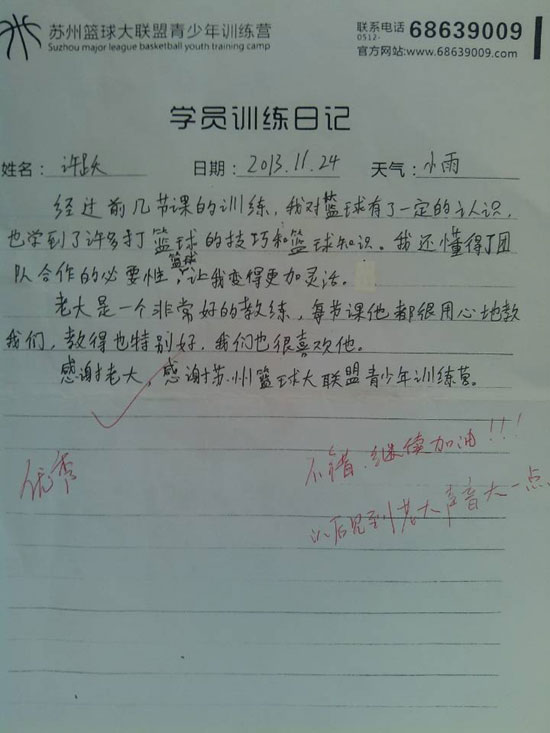 苏州篮球大联盟青少年训练营
Suzhou major league basketball youth training camp
联系电话 0512- 68639009
官方网站:www.68639009.com
学员训练日记
姓名: 许跃 日期: 2013.11.24 天气: 小雨
经过前几节课的训练,我对篮球有了一定的认识,
也学到了许多打篮球的技巧和篮球知识。我还懂得了团
队合作的必要性,篮球让我变得更加灵活。
老大是一个非常好的教练,每节课他都很用心地教
我们,教得也特别好,我们也很喜欢他。
感谢老大,感谢苏州篮球大联盟青少年训练营。
优秀
不错.继续加油!!!
以后见到老大声音大一点